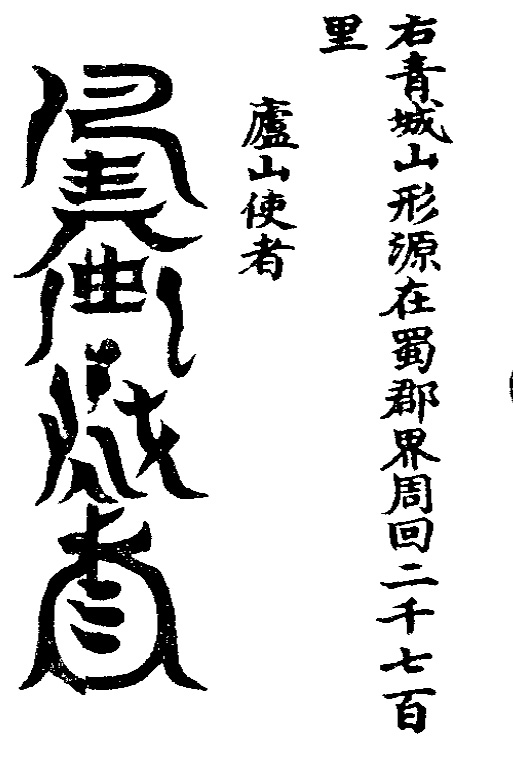 右青城山形源在蜀郡界周回二千七百
里
廬山使者